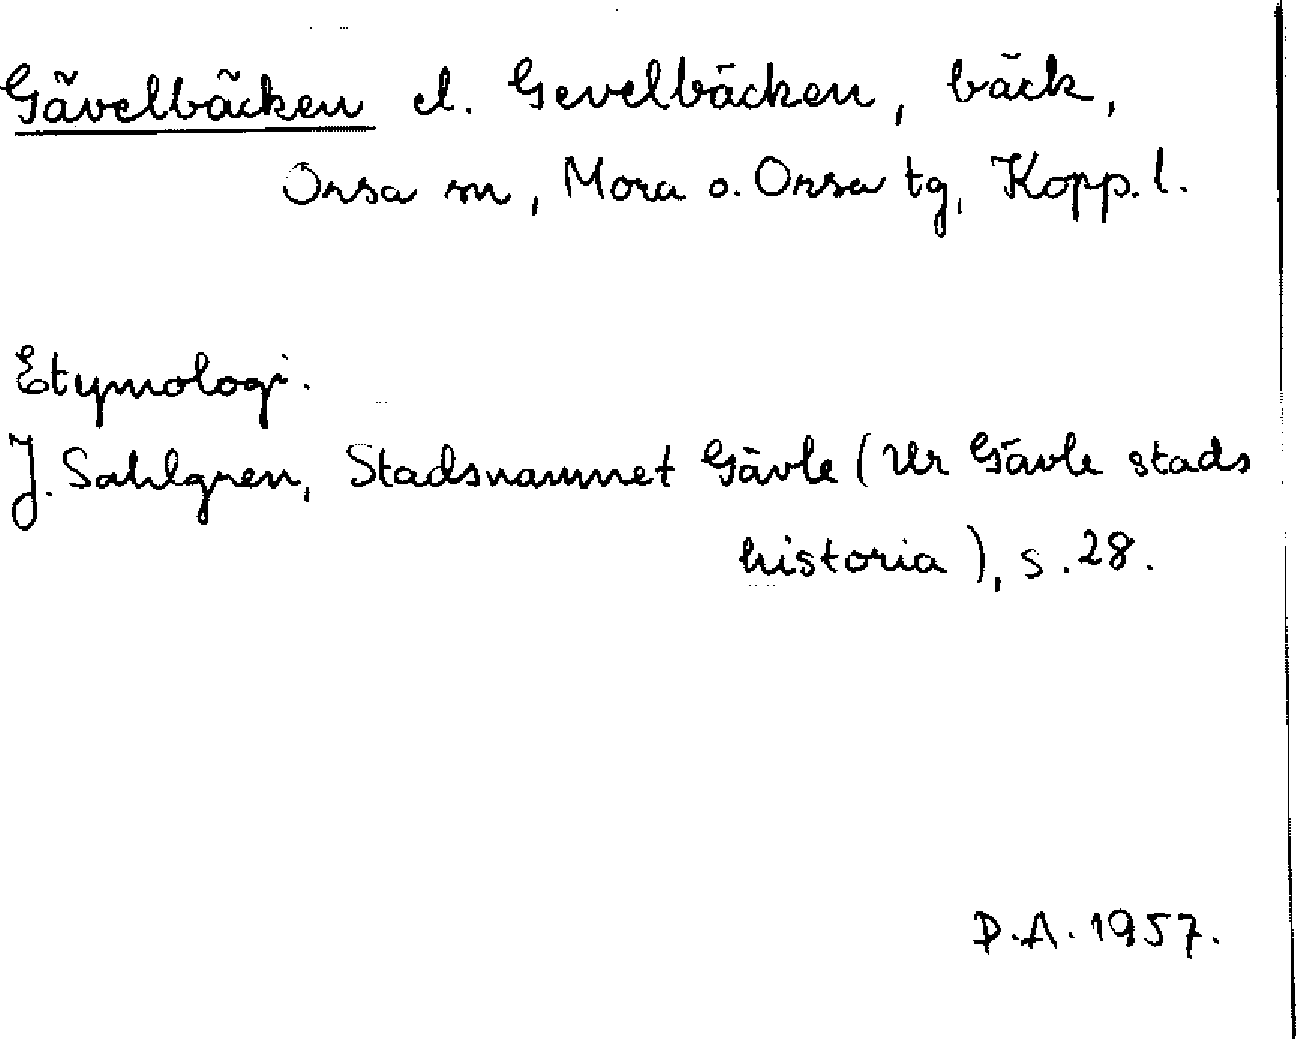 Gävelbäcken el. Gevelbäcken, bäck,
Orsa sn, Mora o. Orsa tg, Kopp. l.
Etymologi.
J. Sahlgren, Stadsnamnet Gävle (Ur Gävle stads
historia), s. 28.
D.A. 1957.